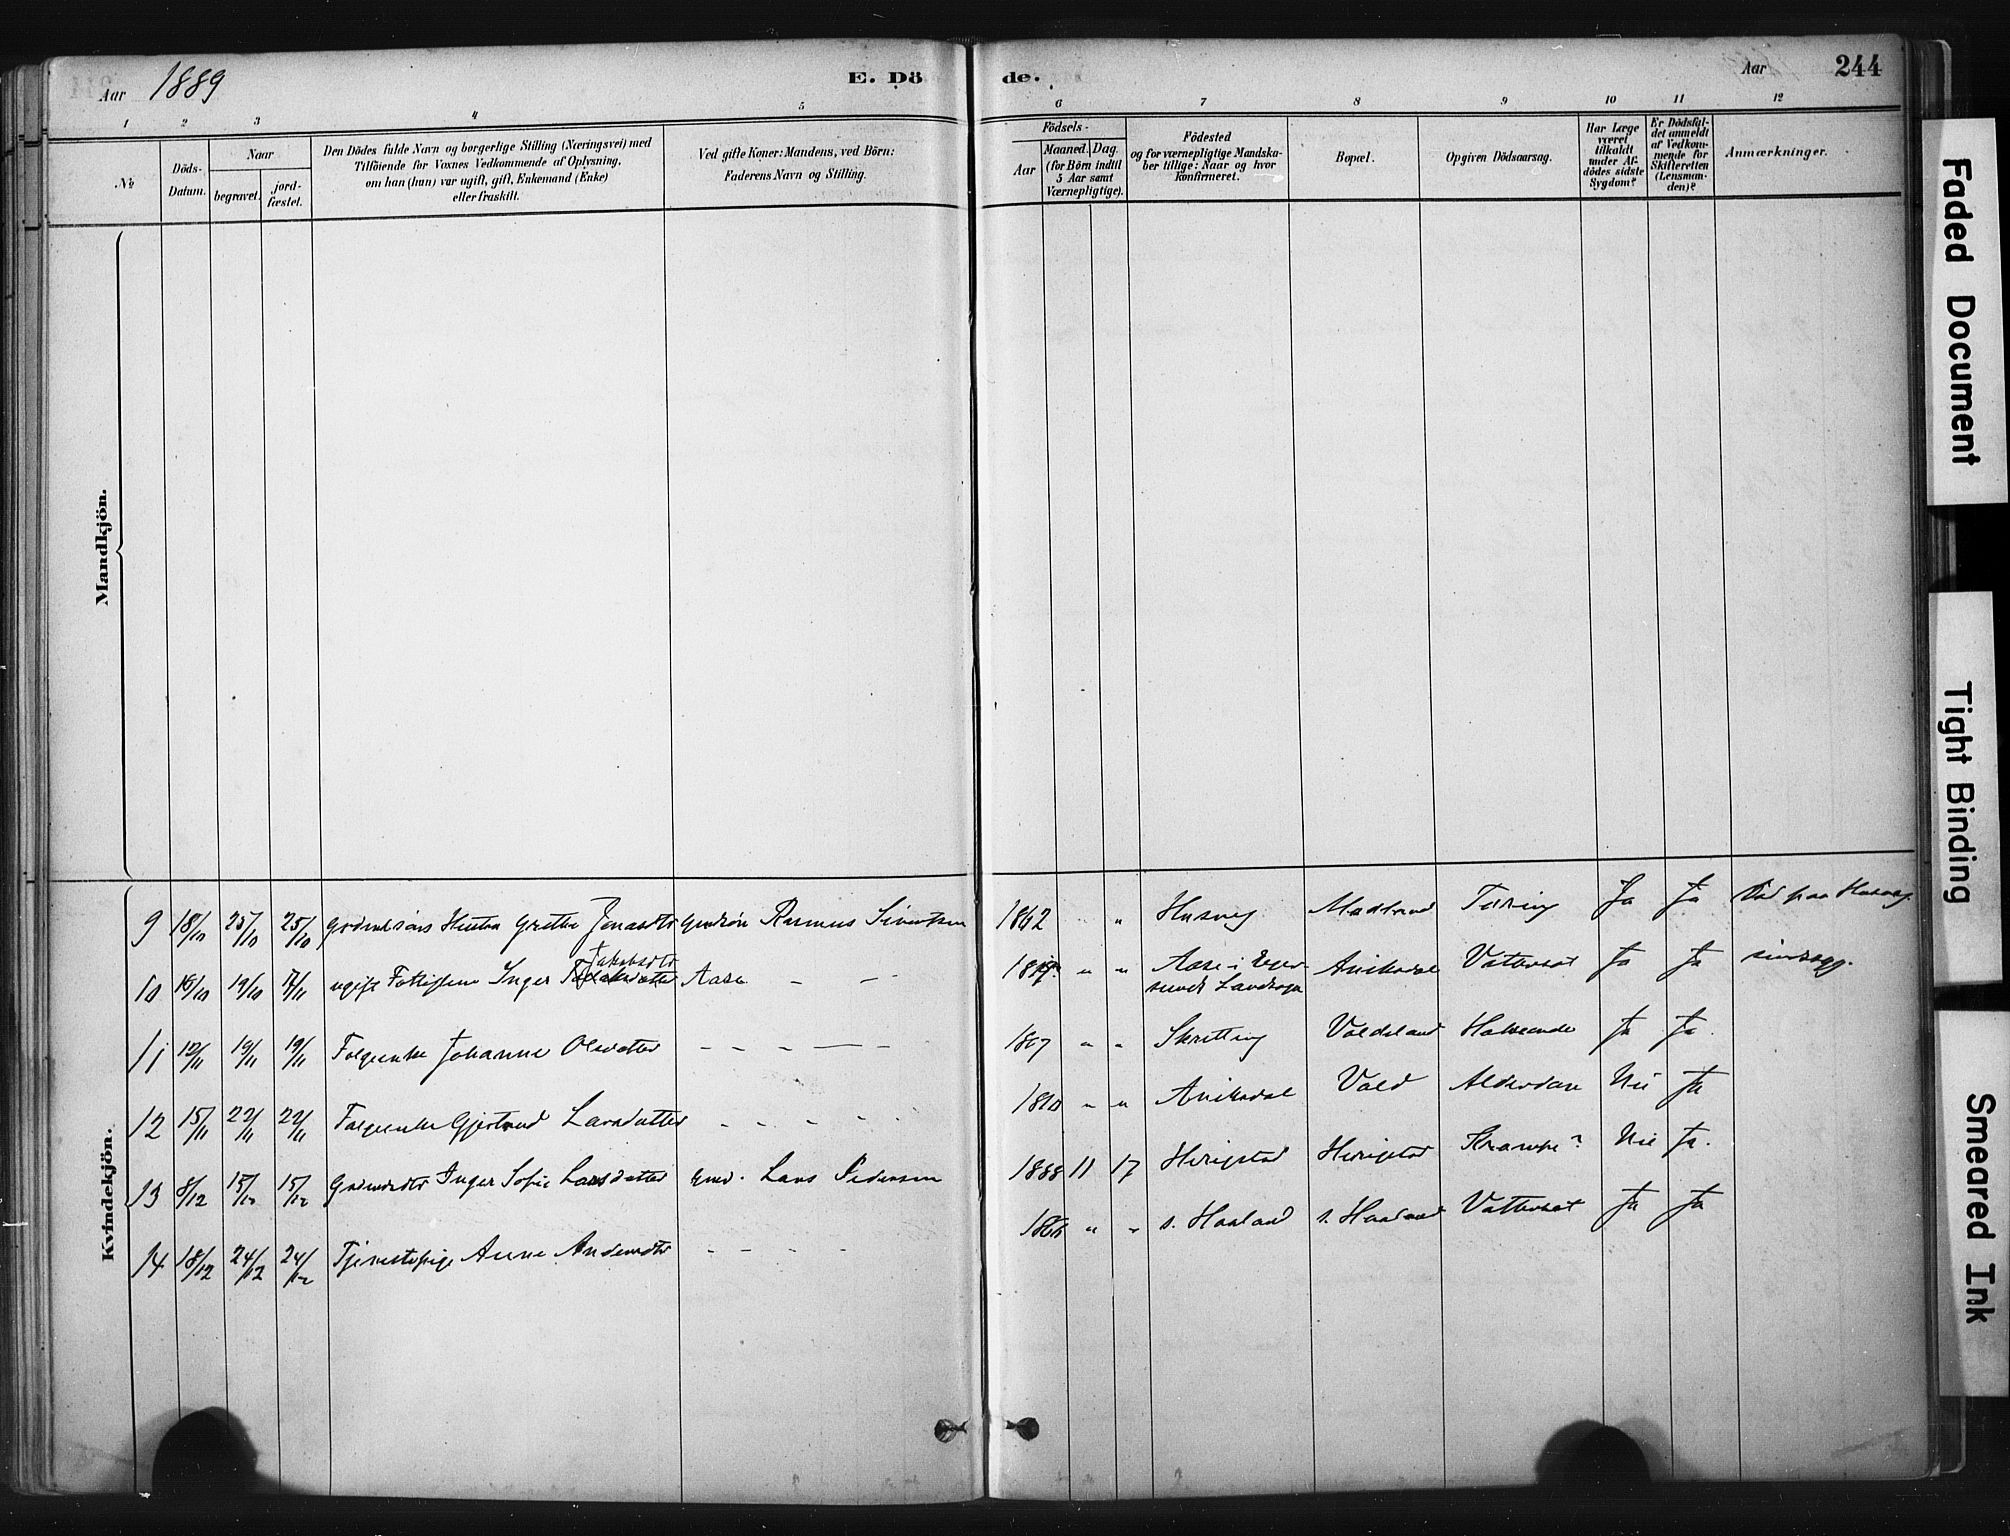 Aar 1889 E. Dö de. Aar 244
1 2 3 4 5 6 7 8 9 10 11 12
№
Döds-Datum.
Naar
begravet.
jord-fæstet.
Den Dödes fulde Navn og borgerlige Stilling (Næringsvei) med
Tilföiende for Voxnes Vedkommende af Oplysning,
om han (hun) var ugift, gift, Enkemand (Enke)
eller fraskilt.
Ved gifte Koner: Mandens, ved Börn:
Faderens Navn og Stilling.
Födsels-
Aar
Maaned. Dag.
(for Börn indtil
5 Aar samt
Værnepligtige).
Födested
og for værnepligtige Mandska-
ber tillige: Naar og hvor
konfirmeret.
Bopæl.
Opgiven Dödsaarsag.
Har Læge
været
tilkaldt
under Af-
dödes sidste
Sygdom?
Er Dødsfal-
det anmeldt
af Vedkom-
mende for
Skifteretten
(Lensman-
den)?
Anmærkninger.
Mandkjön.
Kvindekjön.
9 18/10 25/10 25/10 Grethe Jonasdtr Rasmus Sivertsen 1862 " Husveg Madland Tæring Ja Ja Død paa
10 16/10 19/10 7/11 ugift Inger Jakobsdtr Aase - - " " Aase i Eger-
sunds Landsogn Aniksdal Vattersot Ja Ja sindssyg.
11 12/11 19/11 19/11 Johanne Olsdatter - - - - - 1807 " " Skretting Voldsland Ja Ja.
12 15/11 22/11 22/11 Gjertrud Larsdatter - - - - 1810 " " Aniksdal Vold Nei Ja
13 8/12 15/12 15/12 Inger Sofie Larsdatter Gmd. Lars Pedersen 1888 11 17 Herigstad Herigstad Krampe? Nei Ja.
14 18/12 24/12 24/12 Tjenestepige Anne - - - - " " s. Haaland s. Haaland Vattersot Ja Ja
Faded Document
Tight Binding
Smeared Ink